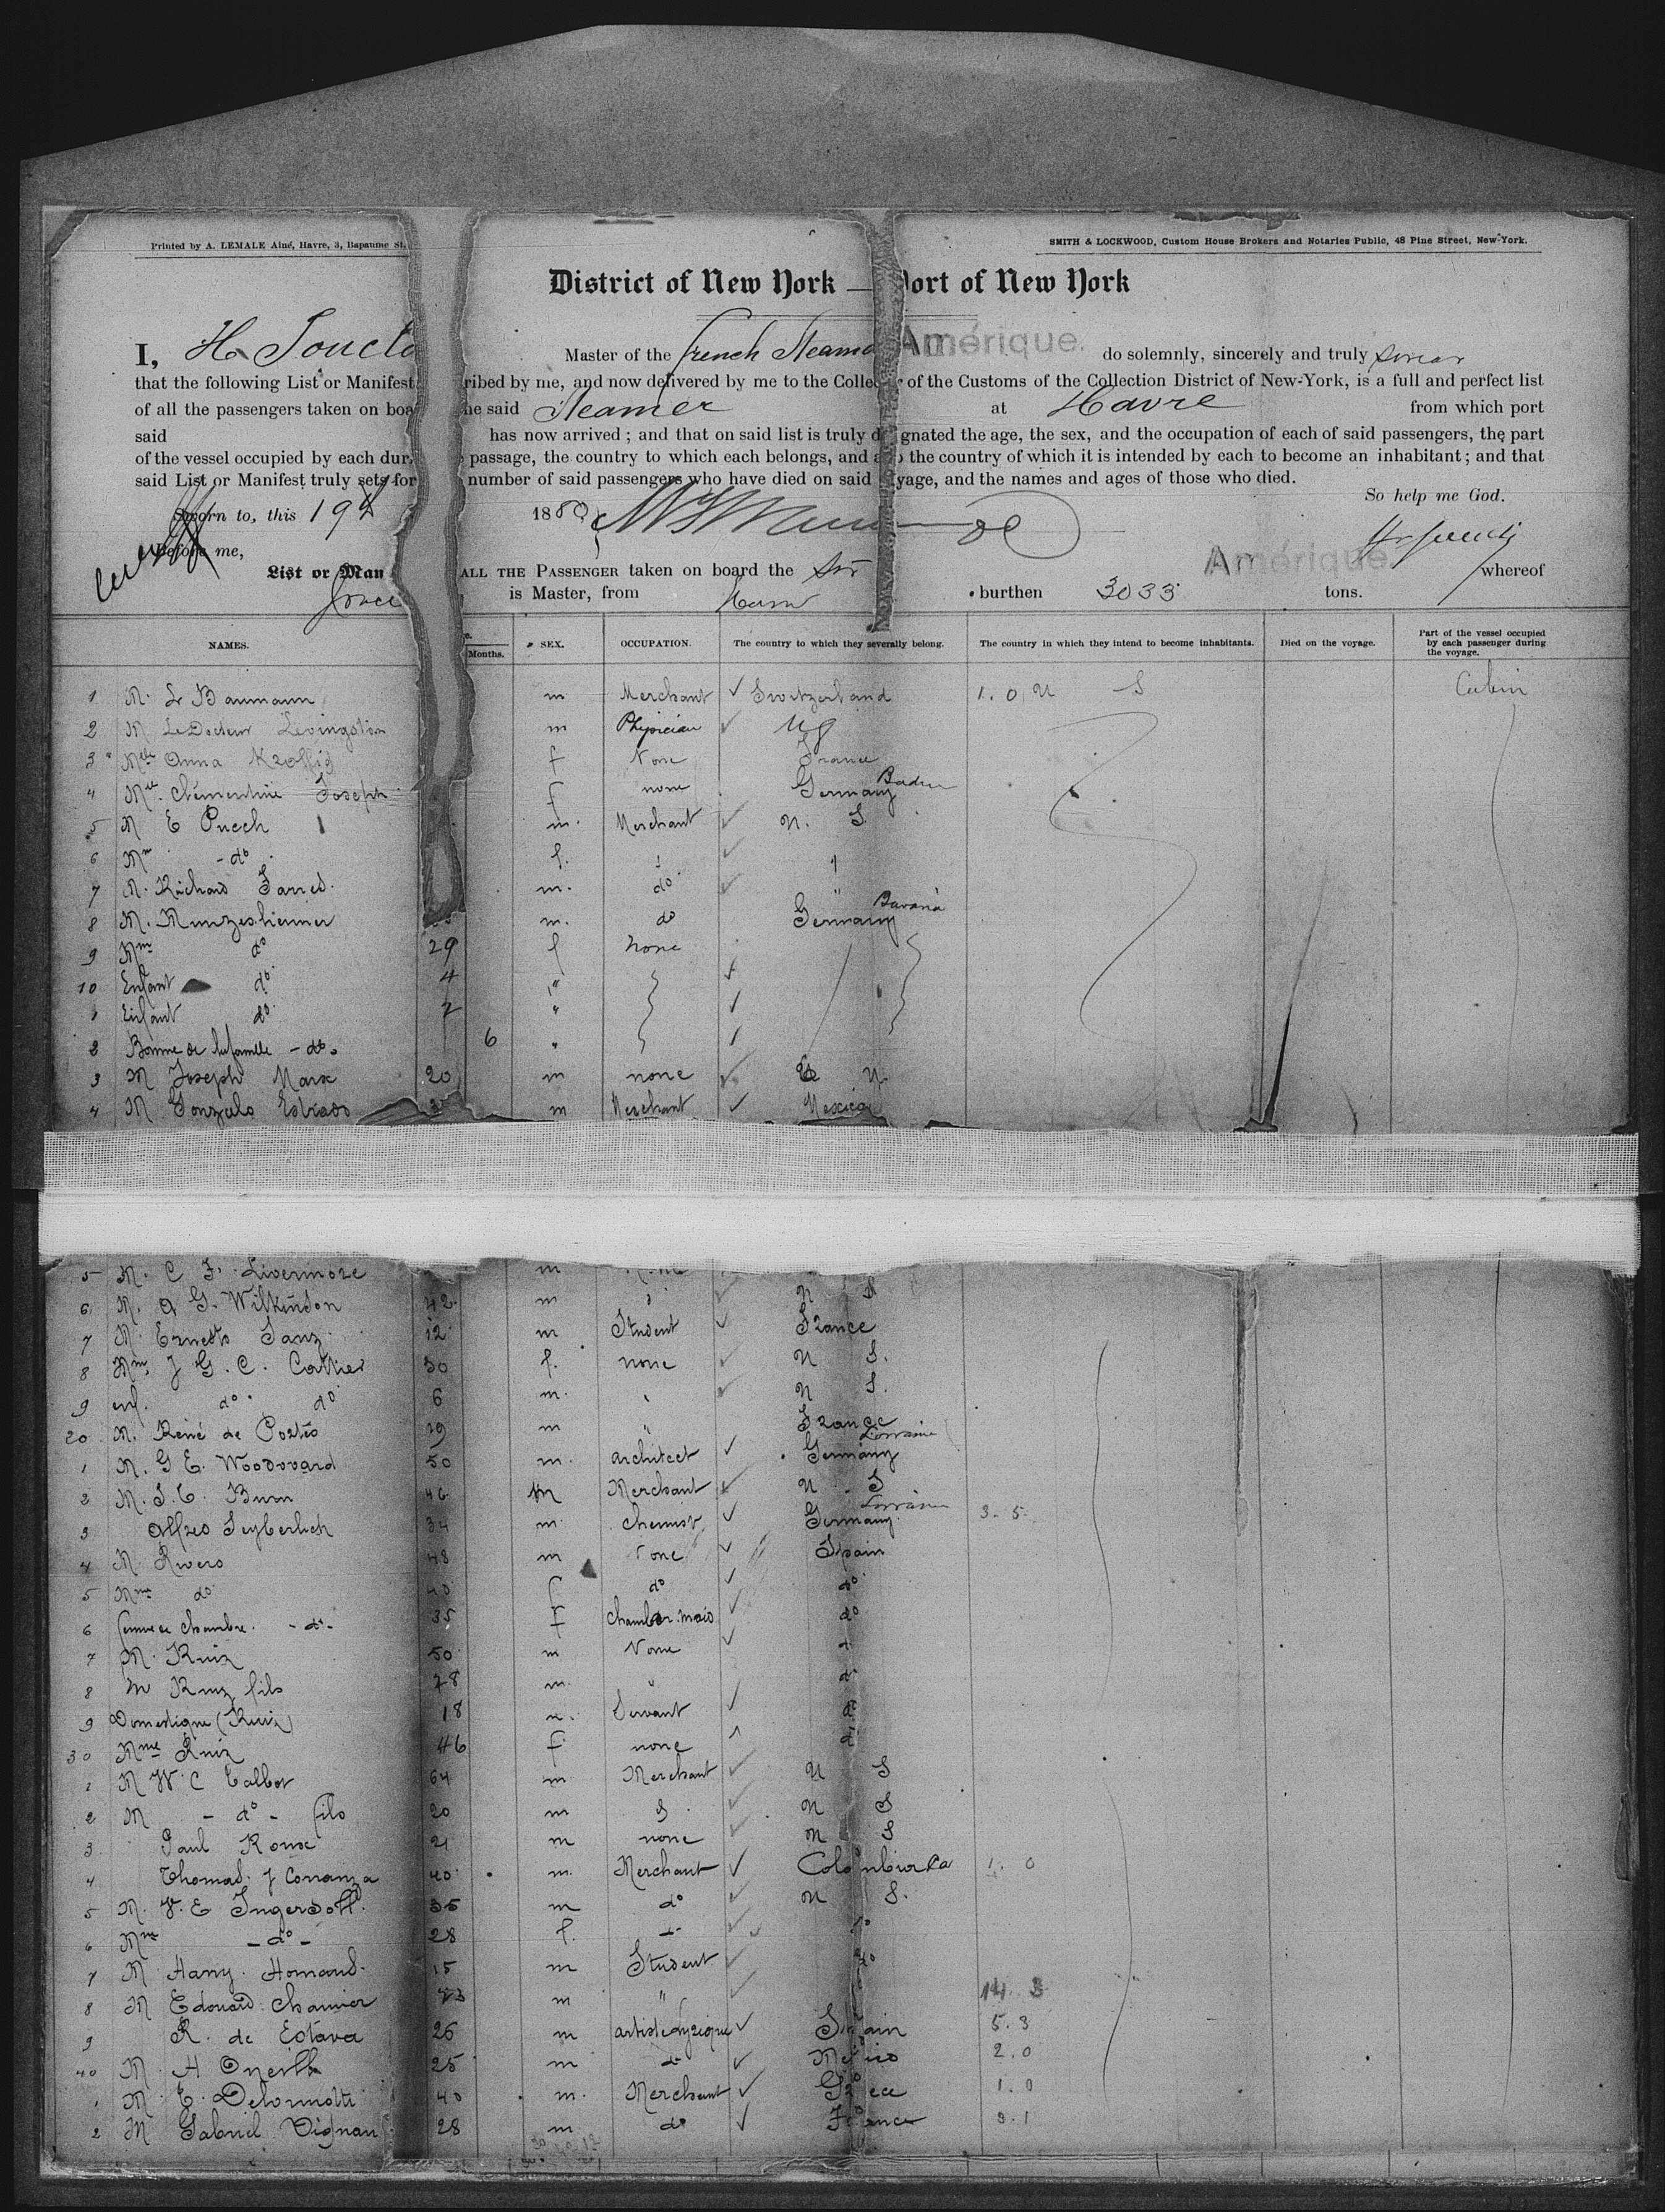 Printed by A. LEMALE Aîné, Havre, 3, Bapaume St.
SMITH & LOCKWOOD, Custom House Brokers and Notaries Public, 48 Pine Street, New-York.
District of New York — Port of New York
I, H. Master of the french Steamer Amérique. do solemnly, sincerely and truly swear
that the following List or Manifest ribed by me, and now delivered by me to the Colle r of the Customs of the Collection District of New-York, is a full and perfect list
of all the passengers taken on boa he said Steamer at Havre from which port
said has now arrived ; and that on said list is truly d gnated the age, the sex, and the occupation of each of said passengers, the part
of the vessel occupied by each dur passage, the country to which each belongs, and a o the country of which it is intended by each to become an inhabitant ; and that
said List or Manifest truly sets for number of said passengers who have died on said yage, and the names and ages of those who died.
So help me God.
Sworn to, this 19th 1880
Before me,
Amérique
List or Man ALL THE PASSENGER taken on board the whereof
is Master, from Havre burthen 3033 tons.
NAMES. Months. SEX. OCCUPATION. The country to which they severally belong. The country in which they intend to become inhabitants. Died on the voyage. Part of the vessel occupied by each passenger during the voyage.
1 M. L. Baumann m Merchant Switzerland 1.0 U S Cabin
2 M Le Docteur Levingston m Physician
3 Mlle Anna f None France
4 Mlle Clémentine Joseph f none Germany Baden
5 M E Puech m. Merchant U. S.
6 Mme do f. "
7 M. Richard m. do "
8 M. Munzesheimer m. do Germany Bavaria
9 Mme do 29 f none
10 Enfant do 4 "
1 Enfant do 2 "
2 Bonne de la famille - do. 6 "
3 M Joseph Marx 20 m none
4 M Gonzalo Estrado m Merchant Mexico
5 M. C F. Livermore m
6 M. A G. Wilkinson 42 m U S
7 M. Ernesto Sanz 12 m Student France
8 Mme J G. C. Cottier 30 f. none U S.
9 enf. do do 6 m. " U S.
20 M. René de Portes 29 m " France
1 M. G E. Woodward 50 m. architect Germany Lorraine
2 M. S. C. Burn 46 m Merchant U. S
3 Alfred Seyberlich 34 m. chemist Germany Lorraine 3.5.
4 M. Rivero 48 m None Spain
5 Mme do 40 f do do
6 femme de chambre. - do - 35 f chamber maid do
7 M. Ruiz 50 m None do
8 M Ruiz fils 28 m. " do
9 Domestique (Ruiz) 18 Servant do
30 Mme Ruiz 46 f none do
1 M W. C Talbot 64 m Merchant U S
2 M - do - fils 20 m U S
3 Paul Roux 21 m none U S
4 Thomas. J Corranza 40 m. Merchant Colombia 1. 0
5 M. V. E Ingersoll 35 m do U S.
6 Mme - do - 28 f. do do
7 M Harry Homand 15 m Student do
8 M Edouard Chamier m " 14. 3
9 R. de Estava 26 m artiste lyrique Spain 5.3
40 M. H Oneill 25 m do Mexico 2.0
1 M. E. Delormotte 40 m. Merchant Greece 1.0
2 M Gabriel Dignan 28 m do France 3.1